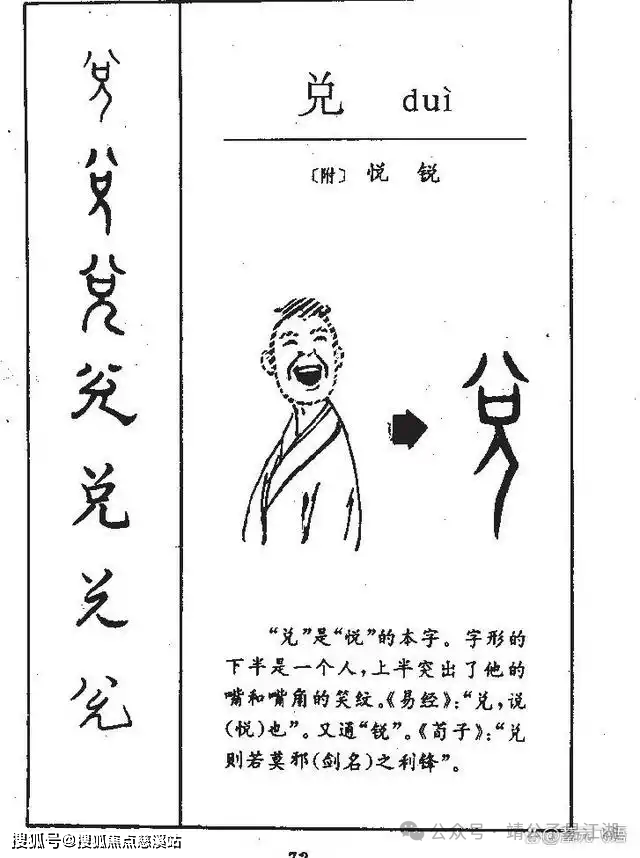 兑 duì
〔附〕 悦 锐
“兑”是“悦”的本字。字形的
下半是一个人,上半突出了他的
嘴和嘴角的笑纹。《易经》:“兑,说
(悦)也”。又通“锐”。《荀子》:“兑
则若莫邪(剑名)之利锋”。
兑
兑
兑
兑
兑
兑
兑
搜狐号@搜狐焦点慈溪站
公众号 · 靖公子易江湖
72